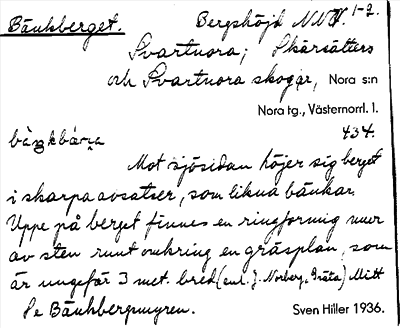 Bänkberget. Bergshöjd NNV. 1-2.
Svartnora; Skärsätters
och Svartnora skogar, Nora s:n
Nora tg., Västernorrl. l.
434.
Mot sjösidan höjer sig berget
i skarpa avsatser, som likna bänkar.
Uppe på berget finnes en ringformig mur
av sten runt omkring en gräsplan, som
är ungefär 3 met. bred (enl. J. Norberg, Gräta) Mitt
Se Bänkbergmyren. Sven Hiller 1936.